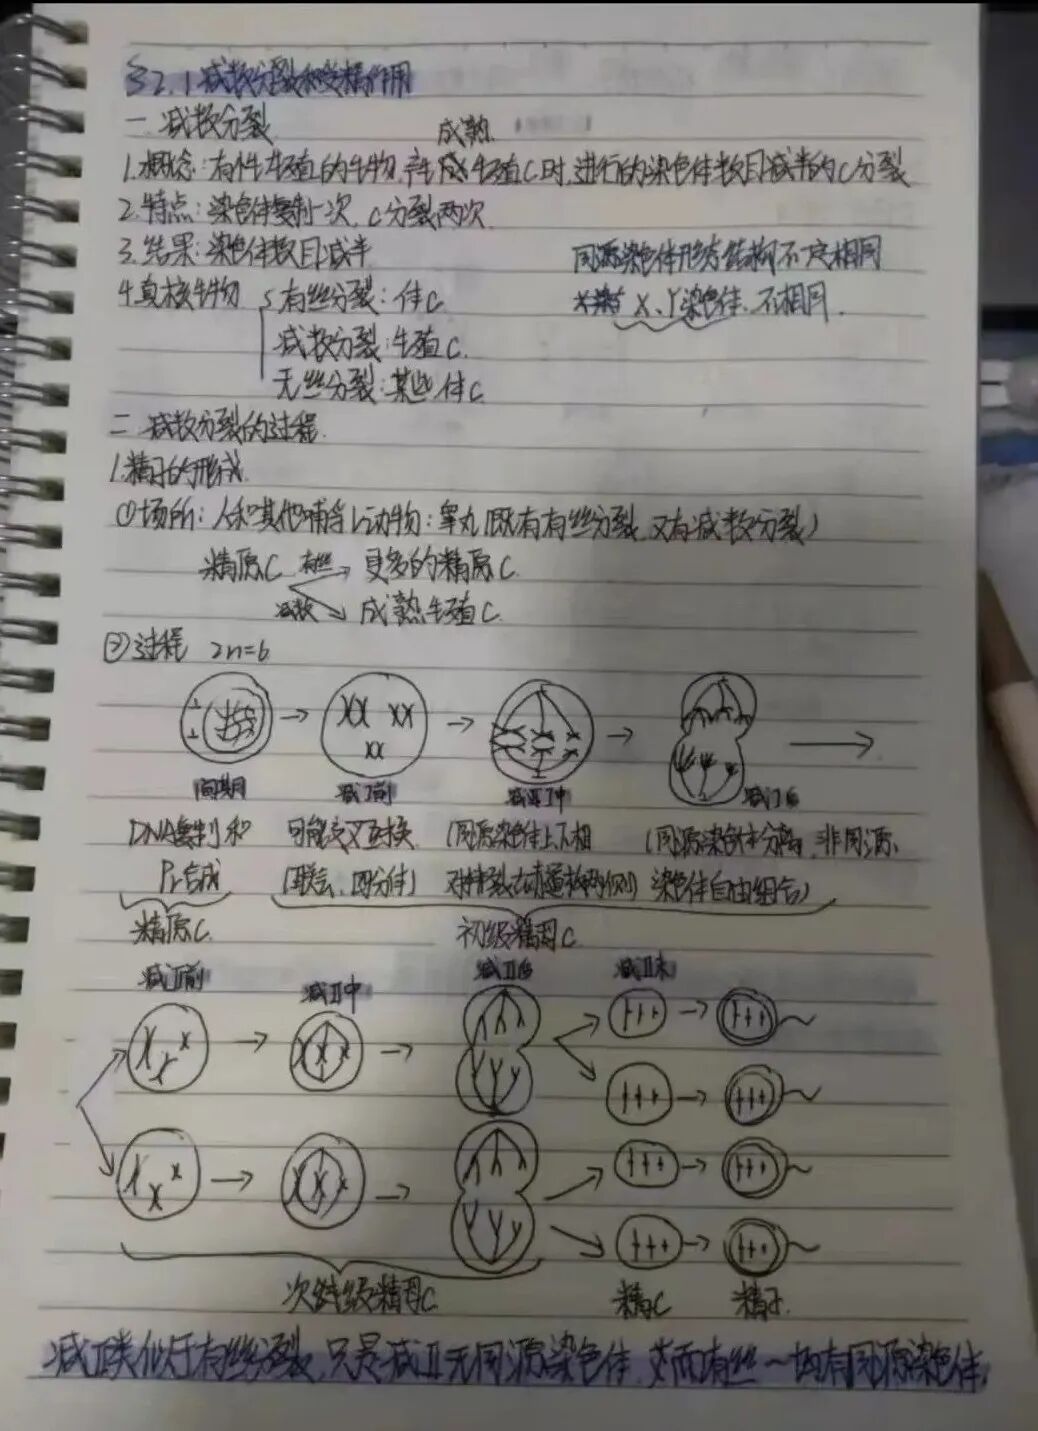 §2.1 减数分裂和受精作用
一.减数分裂
成熟
1.概念:有性生殖的生物,产生成生殖C时,进行的染色体数目减半的C分裂
2.特点:染色体复制一次,C分裂两次.
3.结果:染色体数目减半
同源染色体形态结构不一定相同
4.真核生物 有丝分裂:体C.
X、Y染色体,不相同.
减数分裂:生殖C.
无丝分裂:某些体C
二.减数分裂的过程.
1.精子的形成.
①场所:人和其他哺乳动物:睾丸(既有有丝分裂,又有减数分裂)
精原C 有丝→ 更多的精原C.
减数 成熟生殖C.
②过程 2n=6
间期 减Ⅰ前 减Ⅰ中 减Ⅰ后
DNA复制和 可能交叉互换 (同源染色体上下相 (同源染色体分离,非同源
Pr合成 (联会、四分体) 染色体自由组合)
精原C. 初级精母C
减Ⅱ前 减Ⅱ中 减Ⅱ后 减Ⅱ末
次级精母C. 精C 精子.
减Ⅱ类似于有丝分裂,只是减Ⅱ无同源染色体,而有丝~均有同源染色体.